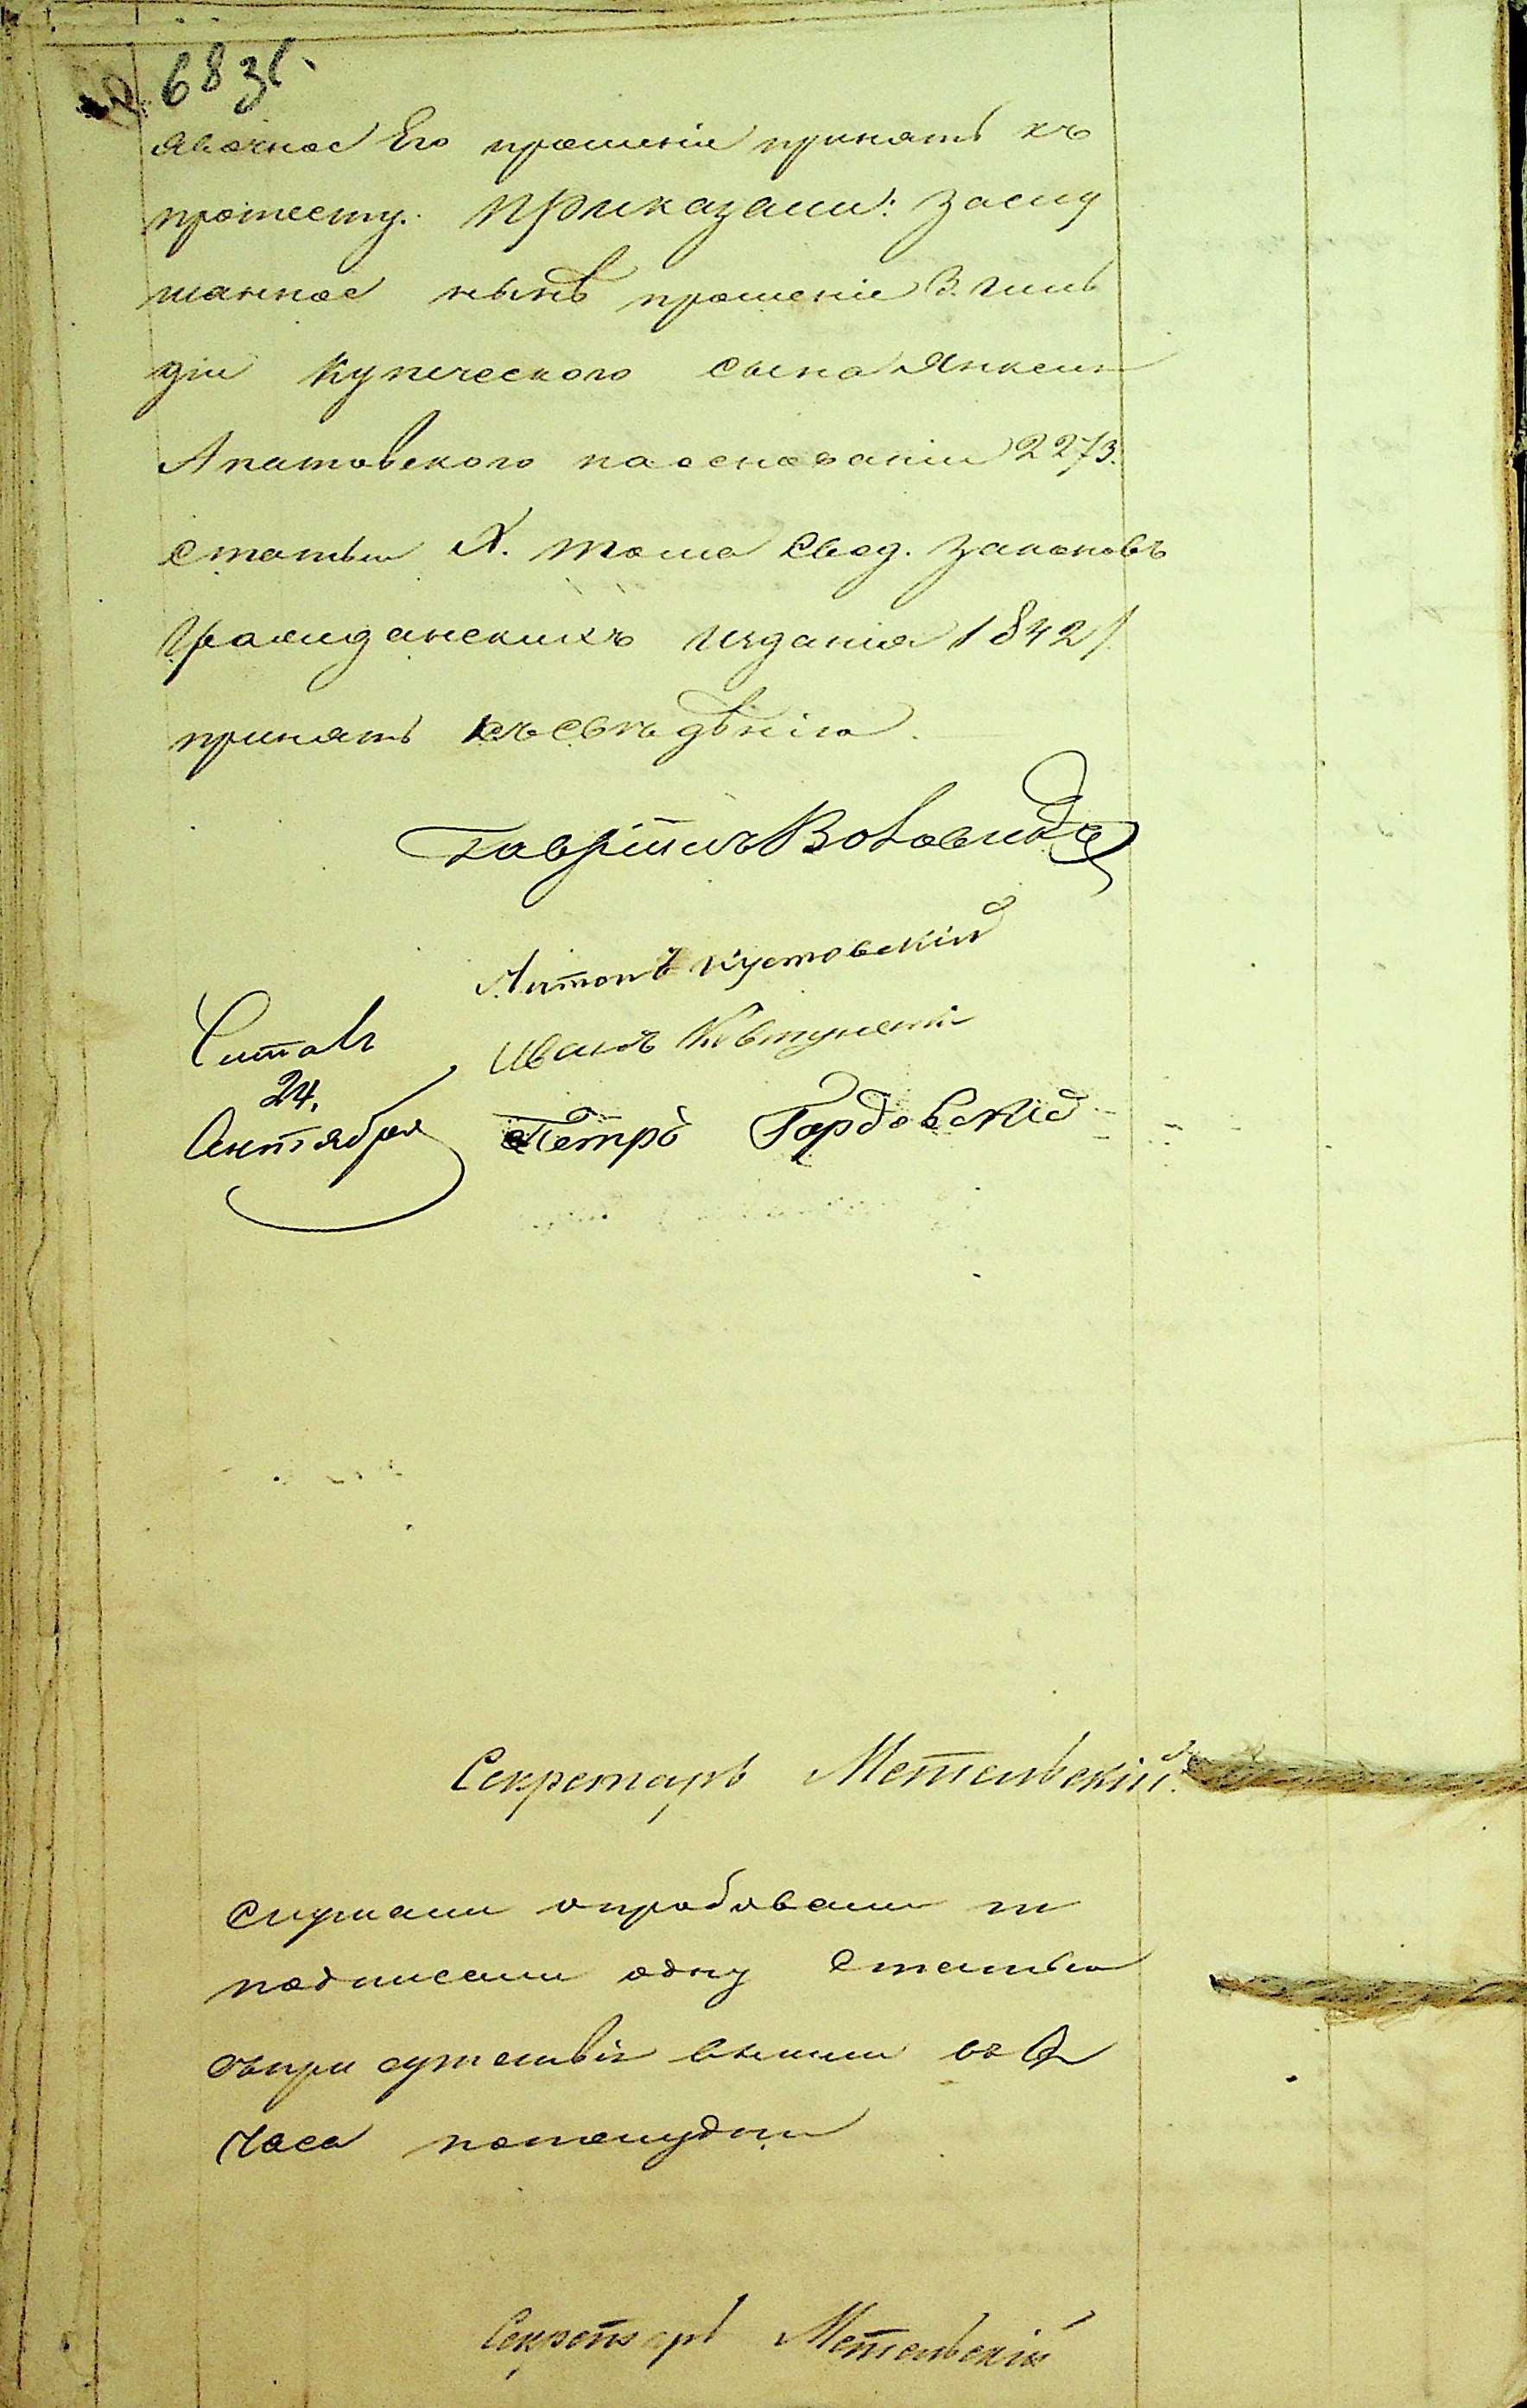 683б.
явочное Его прошеніе принять къ
протесту. Приказали: Заслу
шанное нынѣ прошеніе 3. Гиль
діи Купеческого сына Янкеля
Апатовского на основаніи 2273.
статьи X. тома Свод. Законовъ
Гражданскихъ изданія 1842 г.
принять къ свѣдѣнію.
Гавріилъ
Антонъ Кустовскій
Читалъ
Иванъ
24.
Сентября
Петръ Гордовскій
Секретарь Метельскій.
Слушали опробовали и
подписали одну статью
съ присутствія вышли въ 2
часа пополудни
Секретарь Метельскій